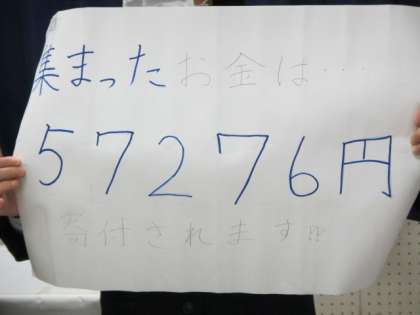 集まったお金は…
57276円
寄付されます!!